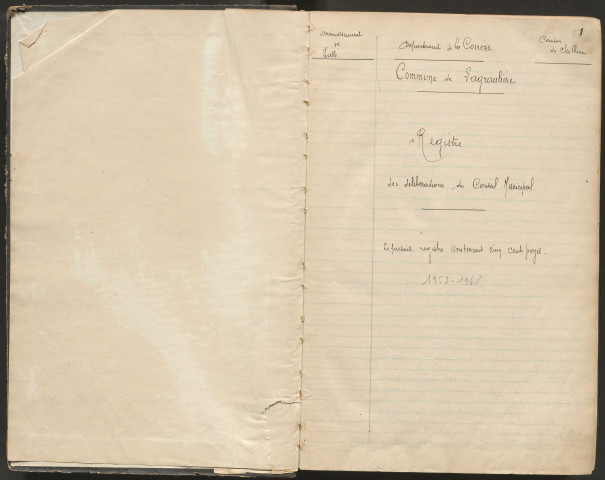 1
Arrondissement
de
Tulle
Département de la Corrèze
Canton
de
Commune de Lagraulière
Registre
des délibérations du Conseil Municipal
Le présent registre contenant cinq cent pages.